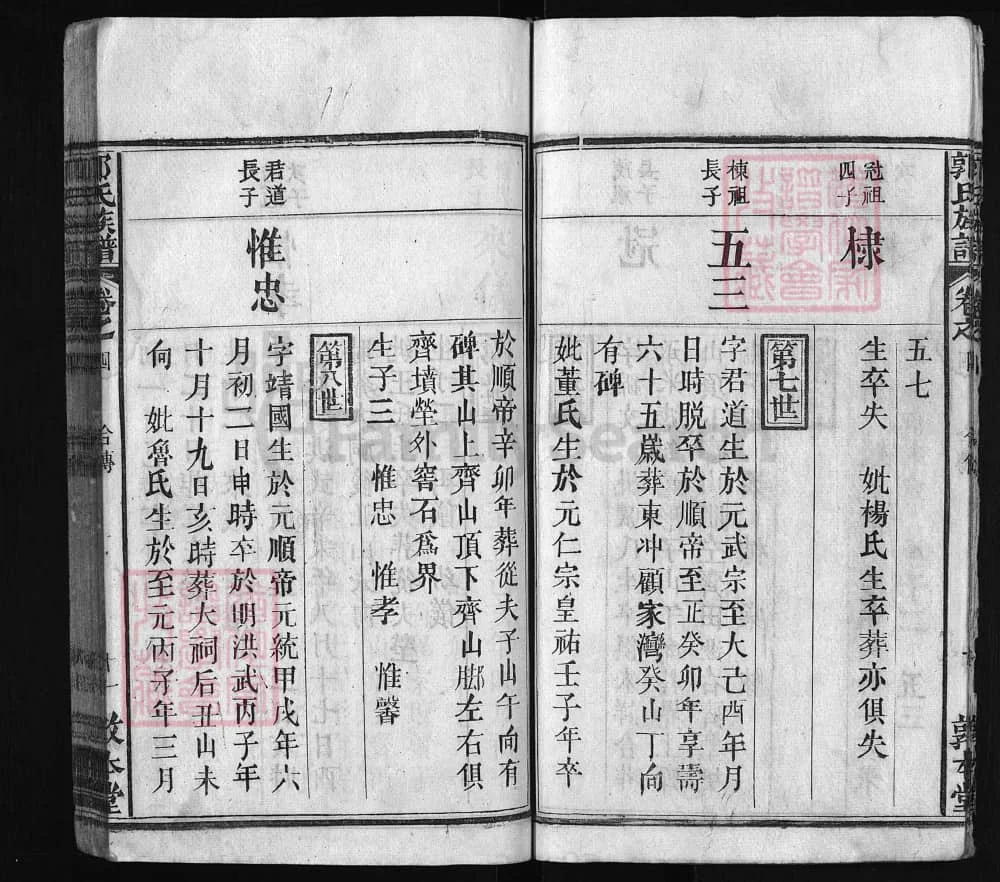 郭氏族譜
卷之四
敦本堂
五七
冠祖
四子
棣
生卒失 妣楊氏生卒葬亦俱失
第七世
棟祖
長子
五三
字君道生於元武宗至大己酉年月
日時脱卒於順帝至正癸卯年享壽
六十五歲葬東冲顧家灣癸山丁向
有碑
妣董氏生於元仁宗皇祐壬子年卒
於順帝辛卯年葬從夫子山午向有
碑其山上齊山頂下齊山腳左右俱
齊墳塋外窖石爲界
生子三 惟忠 惟孝 惟馨
第八世
君道
長子
惟忠
字靖國生於元順帝元統甲戌年六
月初二日申時卒於明洪武丙子年
十月十九日亥時葬大祠后丑山未
向 妣魯氏生於至元丙子年三月
郭氏族譜
卷之四
十一
敦本堂